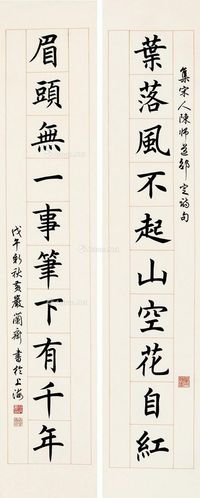 集宋人陳師道邵定詩句
葉落風不起山空花自紅
眉頭無一事筆下有千年
戊午新秋黃巖蘭齋書於上海